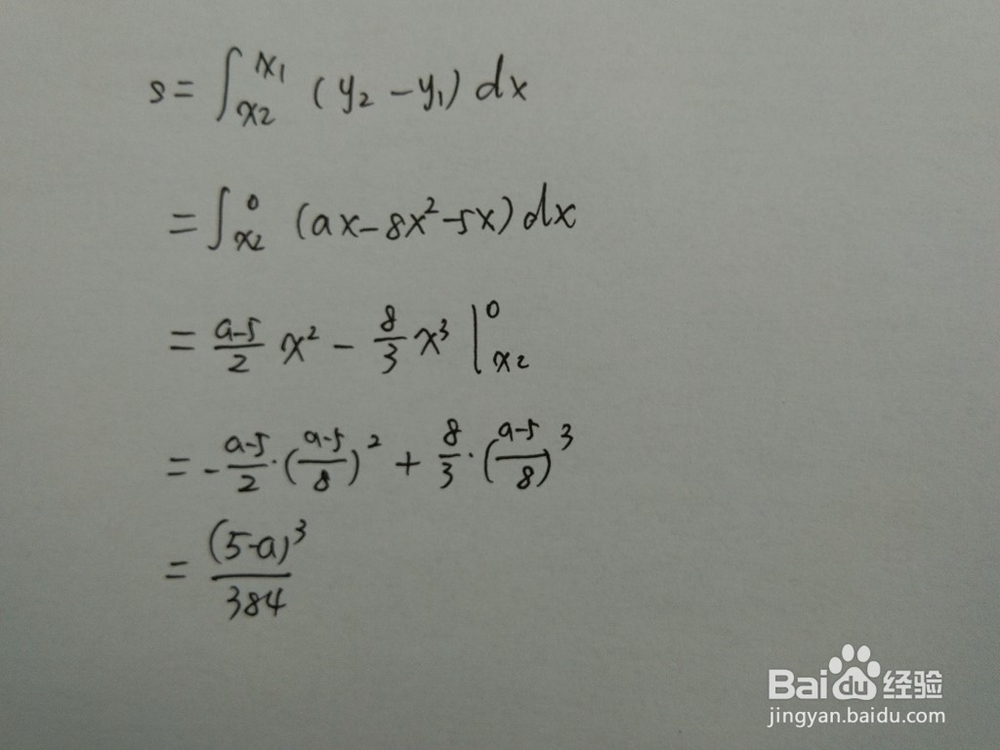 s = ∫_{x2}^{x1} (y₂ - y₁) dx
= ∫_{x2}^{0} (ax - 8x² - 5x) dx
= \frac{a-5}{2} x² - \frac{8}{3} x³ |_{x2}^{0}
= - \frac{a-5}{2} · (\frac{a-5}{8})² + \frac{8}{3} · (\frac{a-5}{8})³
= \frac{(5-a)³}{384}
Baidu 经验
jingyan.baidu.com